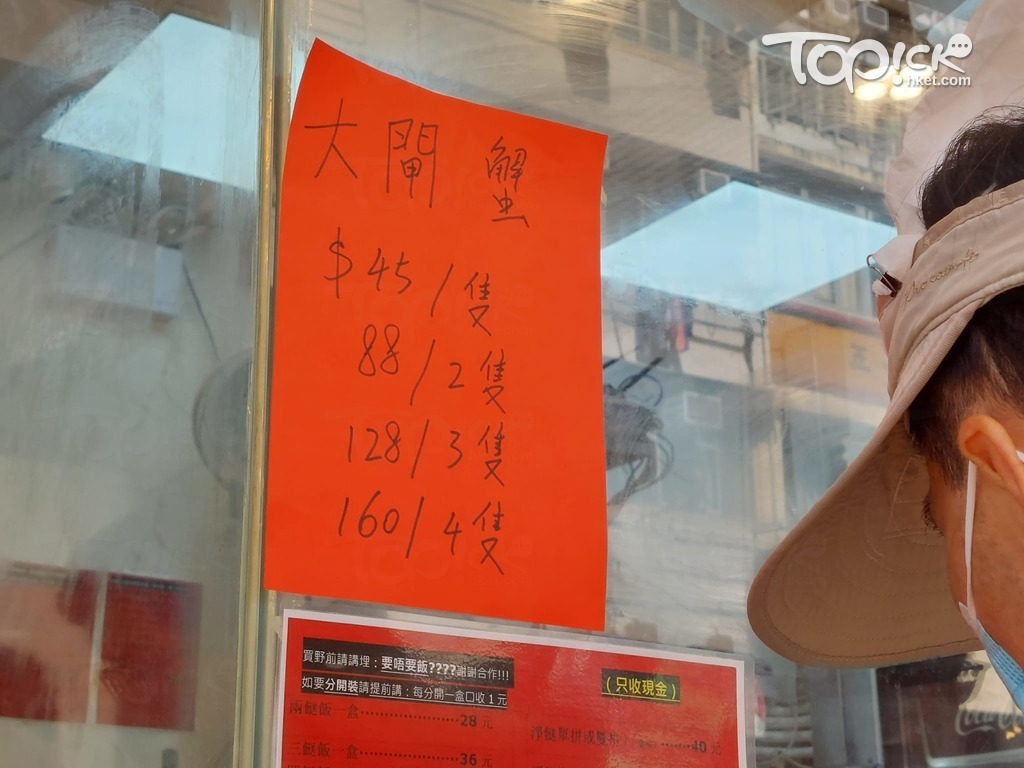 TOPICK
hket.com
大閘蟹
$45/隻
88/2隻
128/3隻
160/4隻
買野前請講埋：要唔要飯????謝謝合作!!!
(只收現金)
如要分開裝請提前講：每分開一盒口收1元
兩餸飯一盒……………………28元
三餸飯一盒……………………36元
淨餸單拼或雙拼
40元